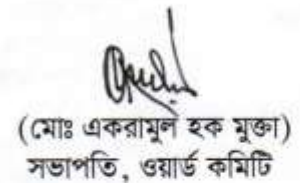 (মোঃ একরামুল হক মুক্তা)
সভাপতি, ওয়ার্ড কমিটি